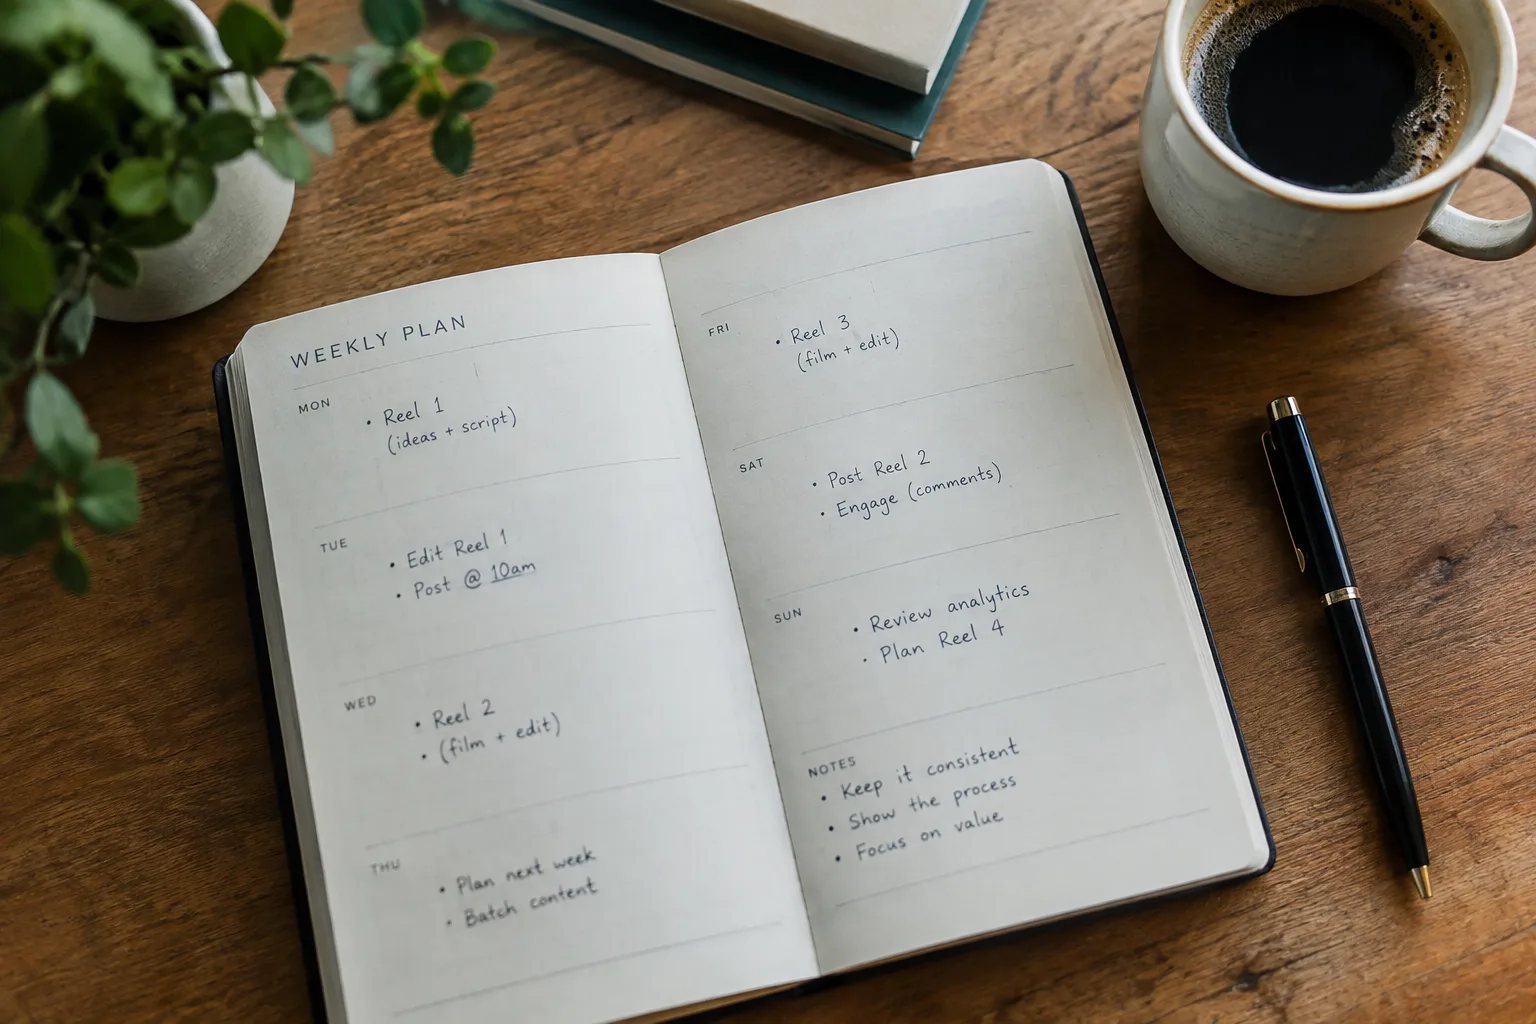 WEEKLY PLAN
MON
• Reel 1
(ideas + script)
TUE
• Edit Reel 1
• Post @ 10am
WED
• Reel 2
• (film + edit)
THU
• Plan next week
• Batch content
FRI
• Reel 3
(film + edit)
SAT
• Post Reel 2
• Engage (comments)
SUN
• Review analytics
• Plan Reel 4
NOTES
• Keep it consistent
• Show the process
• Focus on value